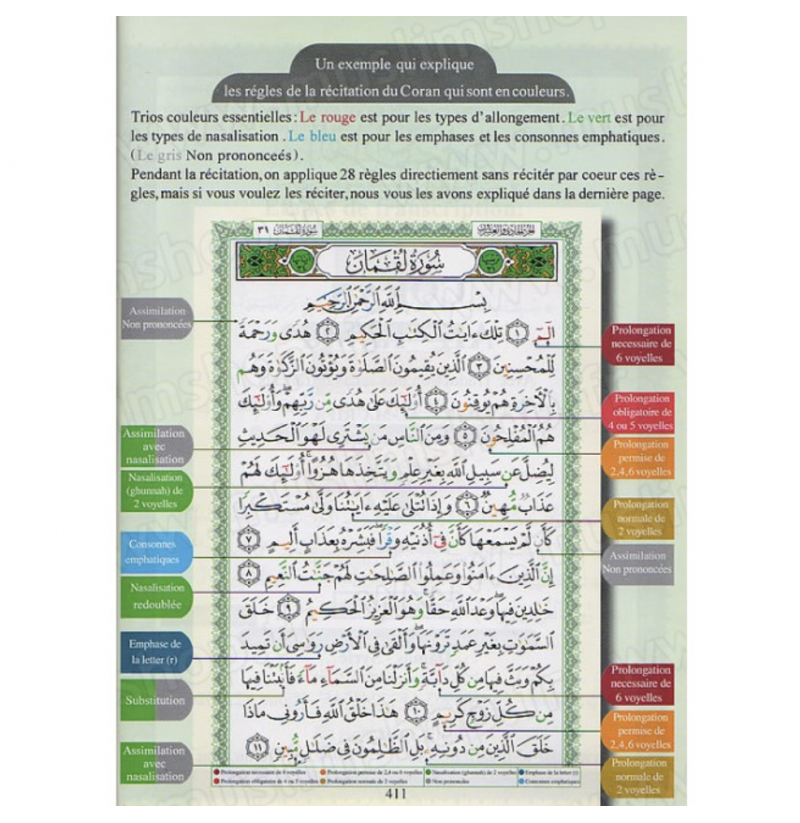 Un exemple qui explique
les régles de la récitation du Coran qui sont en couleurs.
Trios couleurs essentielles : Le rouge est pour les types d'allongement. Le vert est pour
les types de nasalisation . Le bleu est pour les emphases et les consonnes emphatiques.
(Le gris Non prononceés) .
Pendant la récitation, on applique 28 règles directiement sans récitér par coeur ces rè-
gles, mais si vous voulez les réciter, nous vous les avons expliqué dans la dernière page.
Assimilation
Non prononcées
Assimilation
avec
nasalisation
Nasalisation
(ghunnah) de
2 voyelles
Consonnes
emphatiques
Nasalisation
redoublée
Emphase de
la letter (r)
Substitution
Assimilation
avec
nasalisation
سُورَةُ لُقْمَان ٣١
سُورَةُ لُقْمَان
بِسْمِ ٱللَّهِ ٱلرَّحْمَٰنِ ٱلرَّحِيمِ
الٓمٓ ١ تِلْكَ ءَايَٰتُ ٱلْكِتَٰبِ ٱلْحَكِيمِ ٢ هُدًى وَرَحْمَةً
لِّلْمُحْسِنِينَ ٣ ٱلَّذِينَ يُقِيمُونَ ٱلصَّلَوٰةَ وَيُؤْتُونَ ٱلزَّكَوٰةَ وَهُم
بِٱلْءَاخِرَةِ هُمْ يُوقِنُونَ ٤ أُو۟لَٰٓئِكَ عَلَىٰ هُدًى مِّن رَّبِّهِمْ ۖ وَأُو۟لَٰٓئِكَ
هُمُ ٱلْمُفْلِحُونَ ٥ وَمِنَ ٱلنَّاسِ مَن يَشْتَرِى لَهْوَ ٱلْحَدِيثِ
لِيُضِلَّ عَن سَبِيلِ ٱللَّهِ بِغَيْرِ عِلْمٍ وَيَتَّخِذَهَا هُزُوًا ۚ أُو۟لَٰٓئِكَ لَهُمْ
عَذَابٌ مُّهِينٌ ٦ وَإِذَا تُتْلَىٰ عَلَيْهِ ءَايَٰتُنَا وَلَّىٰ مُسْتَكْبِرًا
كَأَن لَّمْ يَسْمَعْهَا كَأَنَّ فِىٓ أُذُنَيْهِ وَقْرًا ۖ فَبَشِّرْهُ بِعَذَابٍ أَلِيمٍ ٧
إِنَّ ٱلَّذِينَ ءَامَنُوا۟ وَعَمِلُوا۟ ٱلصَّٰلِحَٰتِ لَهُمْ جَنَّٰتُ ٱلنَّعِيمِ ٨
خَٰلِدِينَ فِيهَا ۖ وَعْدَ ٱللَّهِ حَقًّا ۚ وَهُوَ ٱلْعَزِيزُ ٱلْحَكِيمُ ٩ خَلَقَ
ٱلسَّمَٰوَٰتِ بِغَيْرِ عَمَدٍ تَرَوْنَهَا ۖ وَأَلْقَىٰ فِى ٱلْأَرْضِ رَوَٰسِىَ أَن تَمِيدَ
بِكُمْ وَبَثَّ فِيهَا مِن كُلِّ دَآبَّةٍ ۚ وَأَنزَلْنَا مِنَ ٱلسَّمَآءِ مَآءً فَأَنۢبَتْنَا فِيهَا
مِن كُلِّ زَوْجٍ كَرِيمٍ ١٠ هَٰذَا خَلْقُ ٱللَّهِ فَأَرُونِى مَاذَا
خَلَقَ ٱلَّذِينَ مِن دُونِهِۦ ۚ بَلِ ٱلظَّٰلِمُونَ فِى ضَلَٰلٍ مُّبِينٍ ١١
Prolongation necessaire de 6 voyelles Prolongation permise de 2,4 ou 6 voyelles Nasalisation (ghunnah) de 2 voyelles Emphase de la letter (r)
Prolongation obligatoire de 4 ou 5 voyelles Prolongation normale de 2 voyelles Non prononcées Consonnes emphatiques
411
Prolongation
necessaire de
6 voyelles
Prolongation
obligatoire de
4 ou 5 voyelles
Prolongation
permise de
2,4,6 voyelles
Prolongation
normale de
2 voyelles
Assimilation
Non prononcées
Prolongation
necessaire de
6 voyelles
Prolongation
permise de
2,4,6 voyelles
Prolongation
normale de
2 voyelles